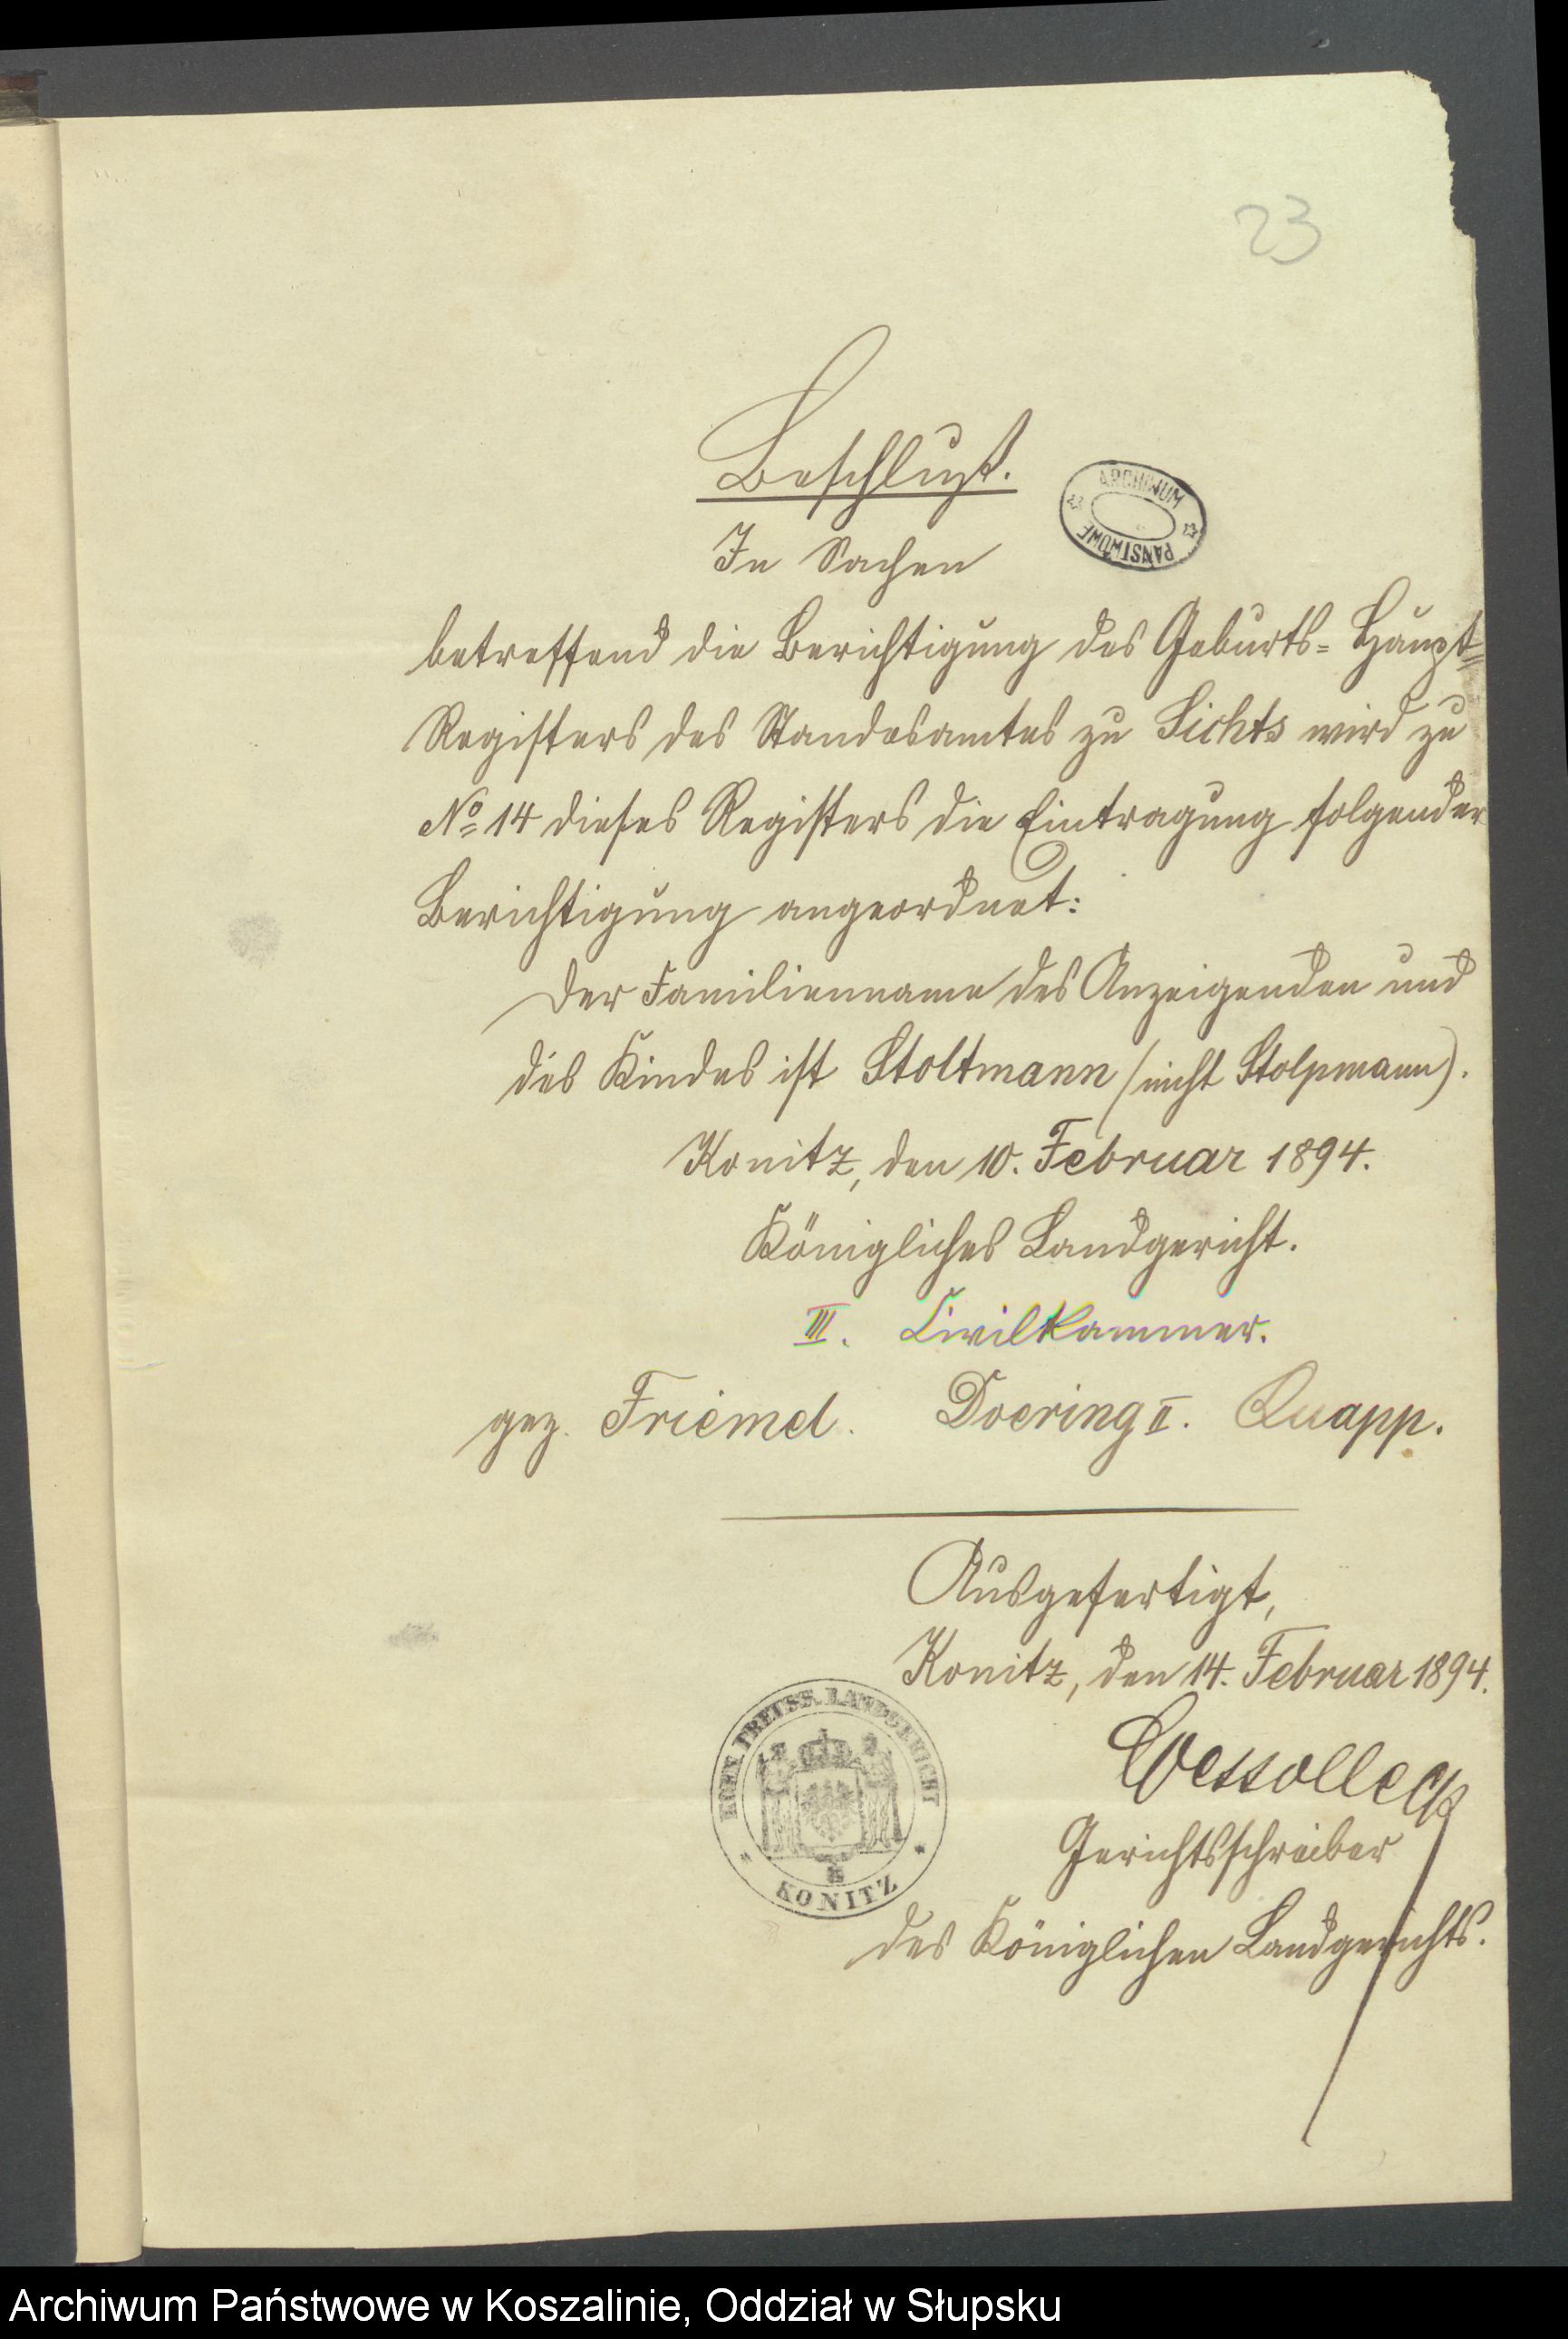 23
Beschluß.
ARCHIWUM PAŃSTWOWE
In Sachen
betreffend die Berichtigung des Geburts= Haupt=
Registers des Standesamtes zu Lichts wird zu
No 14 dieses Registers die Eintragung folgender
Berichtigung angeordnet:
Der Familienname des Anzeigenden und
des Kindes ist Stoltmann (nicht Stolpmann).
Konitz, den 10. Februar 1894.
Königliches Landgericht.
III. Civilkammer.
gez. Friemel. Doering II. Quapp.
Ausgefertigt,
Konitz, den 14. Februar 1894.
Wessolleck
KOEN. PREUSS. LANDGERICHT
KONITZ
Gerichtsschreiber
des Königlichen Landgerichts.
Archiwum Państwowe w Koszalinie, Oddział w Słupsku